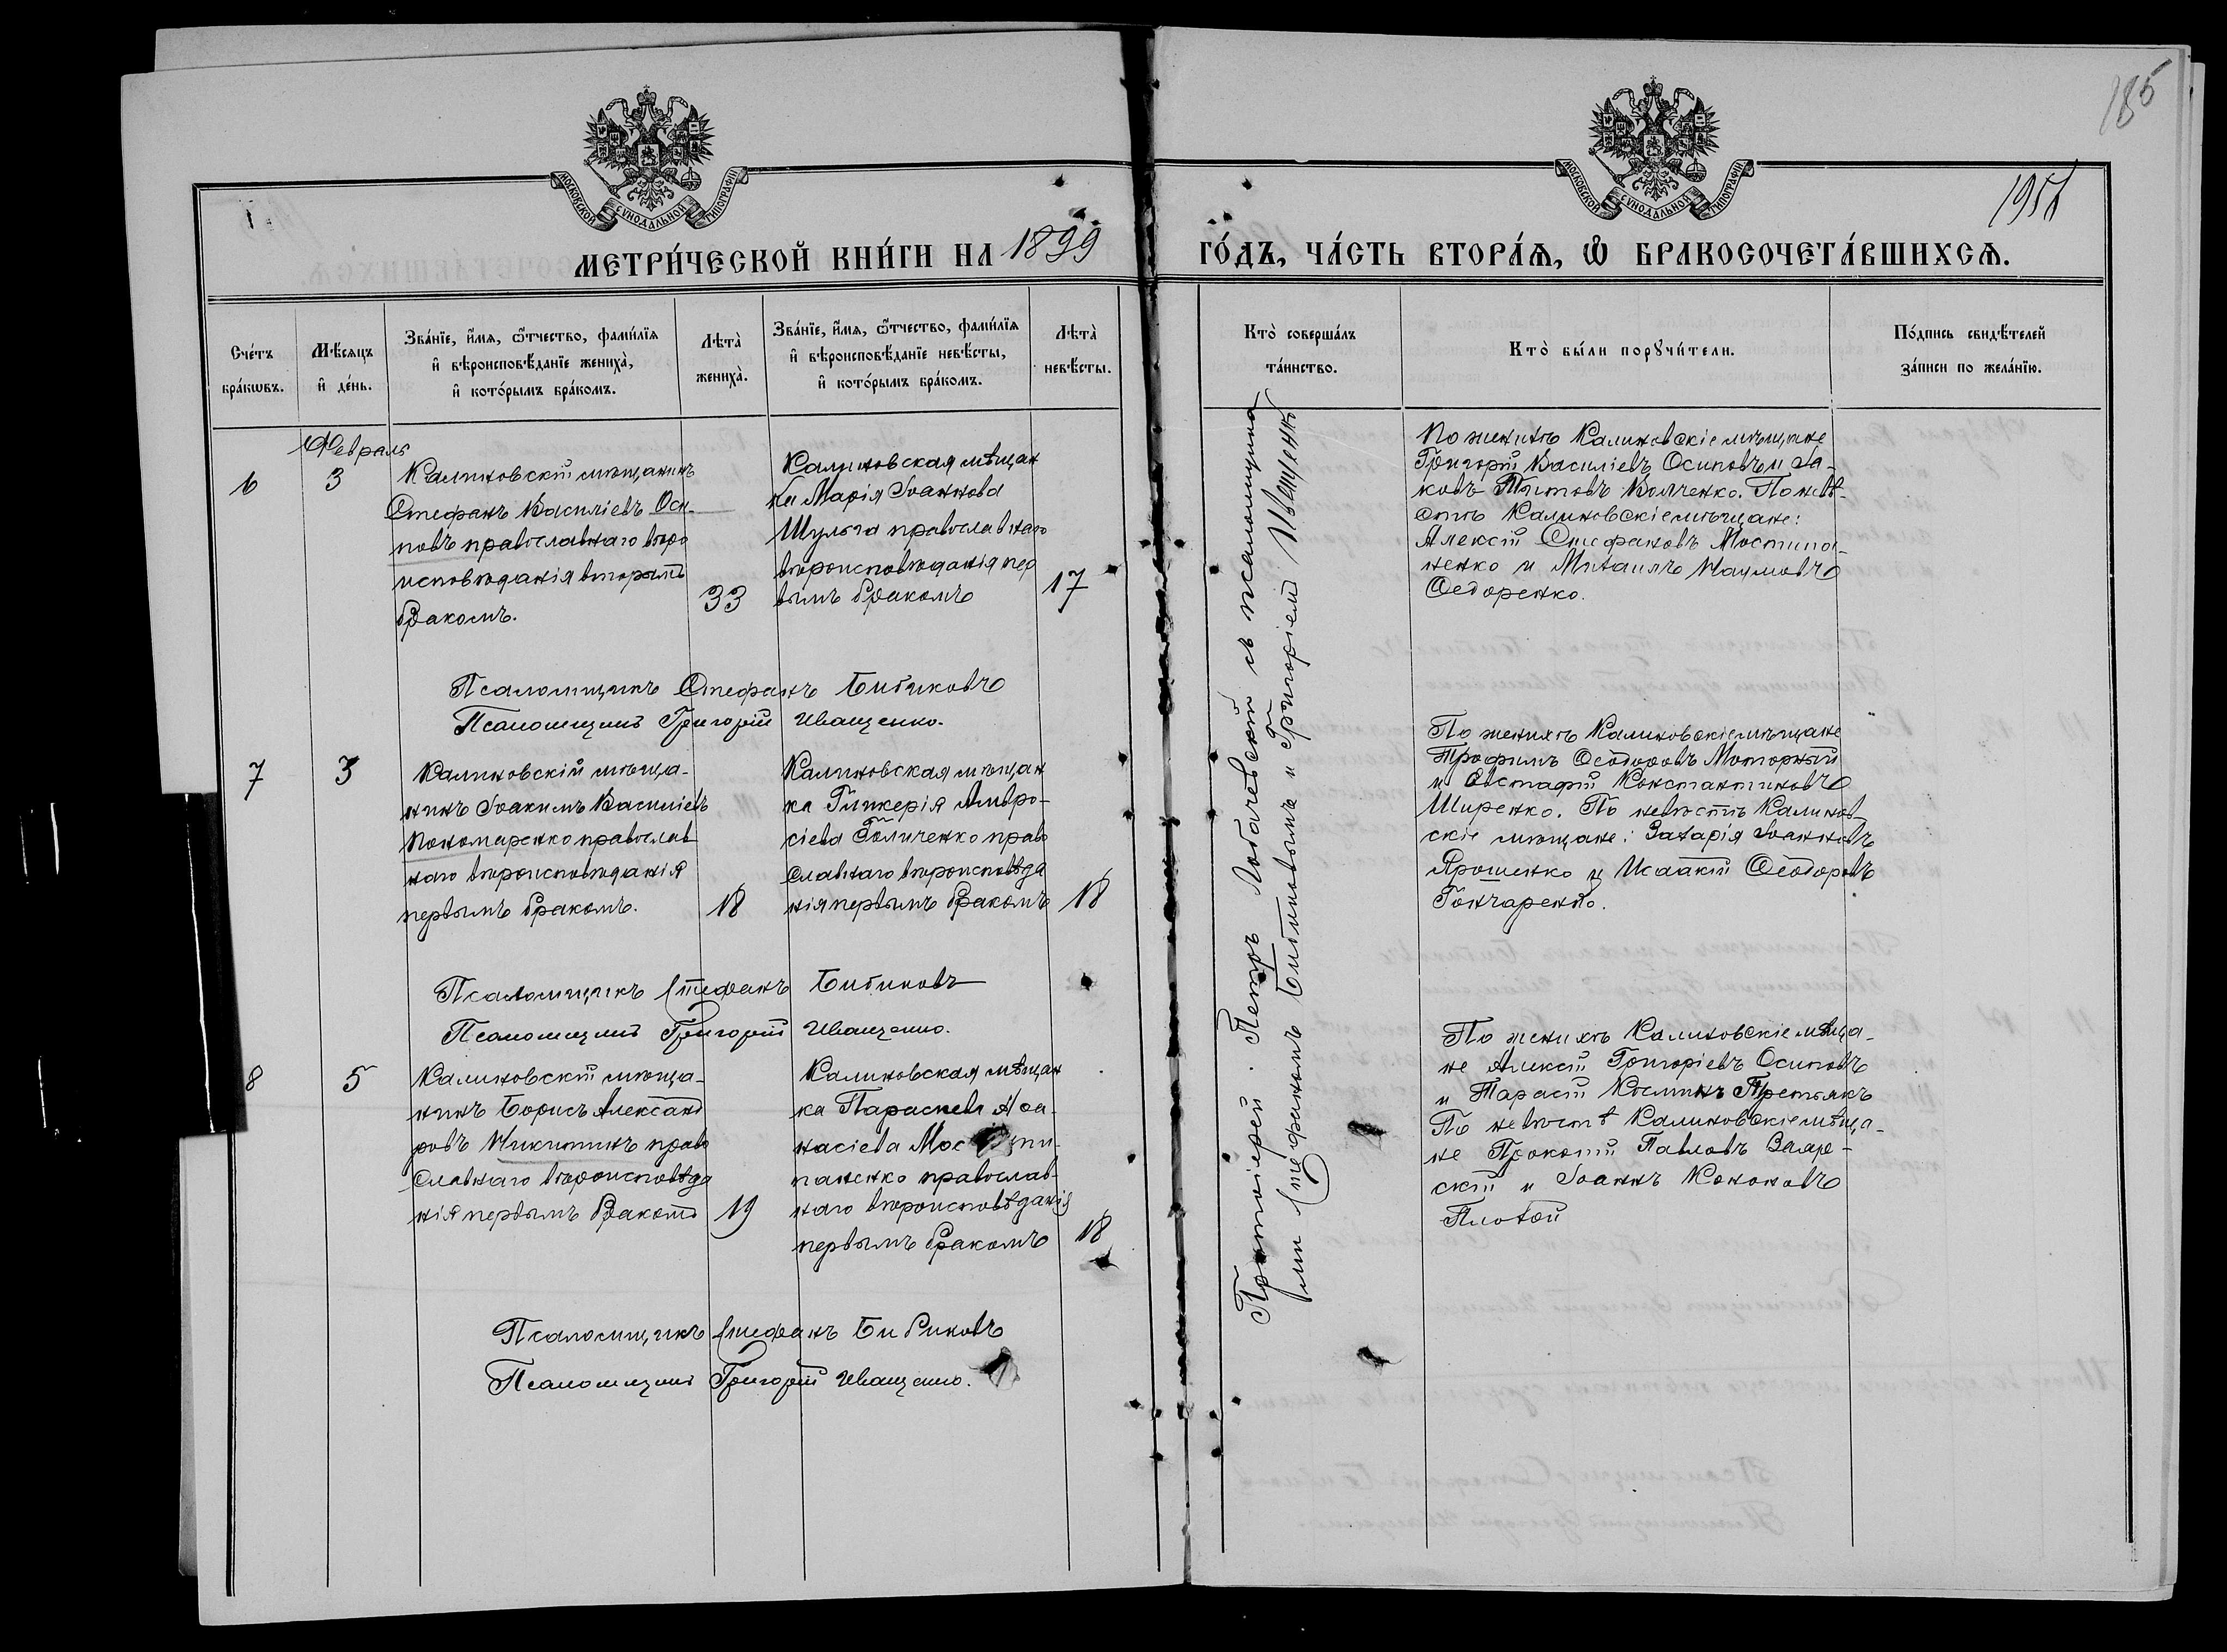 185
195
МОСКОВСКОЙ СУНОДАЛЬНОЙ ТИПОГРАФІИ
МОСКОВСКОЙ СУНОДАЛЬНОЙ ТИПОГРАФІИ
МЕТРИ́ЧЕСКОЙ КНИ́ГИ НА 1899
ГО́ДЪ, ЧА́СТЬ ВТОРА́Ѧ, Ѽ БРАКОСОЧЕТА́ВШИХСѦ.
Сче́тъ
бра́кѡвъ.
Мѣ́сяцъ
и де́нь.
Зва́нїе, и́мѧ, ѻ҆́тчество, фами́лїѧ
и҆ вѣроисповѣ́данїе жениха̀,
и҆ кото́рымъ бра́комъ.
Лѣта̀
жениха̀.
Зва́нїе, и́мѧ, ѻ҆́тчество, фами́лїѧ
и҆ вѣроисповѣ́данїе невѣ́сты,
и҆ кото́рымъ бра́комъ.
Лѣта̀
невѣ́сты.
Кто̀ соверша́лъ
та́инство.
Кто̀ бы́ли порꙋчи́тели.
По́дпись свидѣ́телей
за́писи по жела́нїю.
Февраль
6
3
Калиновскій мѣщанинъ
Стефанъ Василіевъ Оси-
повъ православнаго вѣро
исповѣданія вторымъ
бракомъ.
33
Калиновская мѣщан
ка Марія Іоаннова
Шульга православнаго
вѣроисповѣданія пер
вымъ бракомъ
17
По женихѣ Калиновскіе мѣщане
Григорій Василіевъ Осиповъ и Іа-
ковъ Титовъ Волченко. По невѣ-
стѣ Калиновскіе мѣщане:
Алексій Стефановъ Мостипа-
ненко и Михаилъ Наумовъ
Ѳедоренко.
Псаломщикъ Стефанъ Бибиковъ
Псаломщикъ Григорій Иващенко.
7
3
Калиновскій мѣща-
нинъ Іоакимъ Василіевъ
Пономаренко православ
наго вѣроисповѣданія
первымъ бракомъ.
18
Калиновская мѣщан
ка Гликерія Амвро-
сіева Голиченко право
славнаго вѣроисповѣда
нія первымъ бракомъ
18
По женихѣ Калиновскіе мѣщане
Трофимъ Ѳеодоровъ Моторный
и Евстафій Константиновъ
Ширенко. По невѣстѣ Калинов-
скіе мѣщане: Захарія Іоанновъ
Ярошенко и Исаакій Ѳеодоровъ
Гончаренко.
Псаломщикъ Стефанъ Бибиковъ
Псаломщикъ Григорій Иващенко.
8
5
Калиновскій мѣща-
нинъ Борисъ Александ
ровъ Никитинъ право
славнаго вѣроисповѣда
нія первымъ бракомъ
19
Калиновская мѣщан
ка Параскева Аѳа-
насіева Мостипа-
паненко православ-
наго вѣроисповѣданія
первымъ бракомъ
18
По женихѣ Калиновскіе мѣща-
не Алексій Григоріевъ Осиповъ
и Тарасій Косминъ Третьякъ
По невѣстѣ Калиновскіе мѣща-
не Прокопій Павловъ
и Іоаннъ Кононовъ
Плохой
Псаломщикъ Стефанъ Бибиковъ
Псаломщикъ Григорій Иващенко.
Протоіерей Петръ Лобачевскій съ псаломщика
ми Стефаномъ Бибиковымъ и Григоріемъ Иващенко